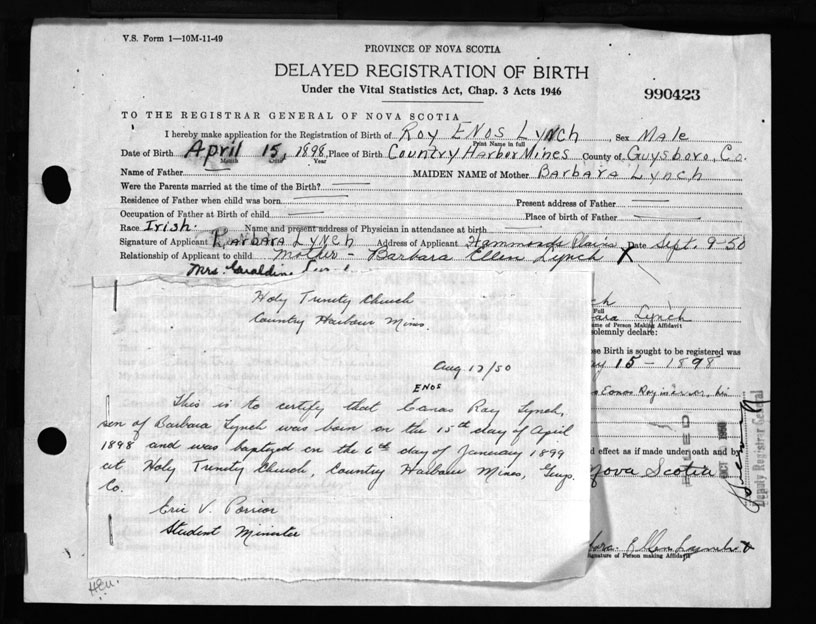 V.S. Form 1—10M-11-49
PROVINCE OF NOVA SCOTIA
DELAYED REGISTRATION OF BIRTH
Under the Vital Statistics Act, Chap. 3 Acts 1946
990423
TO THE REGISTRAR GENERAL OF NOVA SCOTIA
I hereby make application for the Registration of Birth of Roy Enos Lynch, Sex Male
Print Name in full
Date of Birth April 15, 1898, Place of Birth Country Harbor Mines County of Guysboro, Co.
Month Date Year
Name of Father MAIDEN NAME of Mother Barbara Lynch
Were the Parents married at the time of the Birth?
Residence of Father when child was born Present address of Father
Occupation of Father at Birth of child Place of birth of Father
Race Irish. Name and present address of Physician in attendance at birth
Signature of Applicant Barbara Lynch Address of Applicant Hammonds Plains Date Sept. 9-50
Relationship of Applicant to child Mother - Barbara Ellen Lynch X
Mrs. Geraldine
Holy Trinity Church
Country Harbour Mines.
Aug 12/50
ENOS
This is to certify that Eanas Roy Lynch,
son of Barbara Lynch was born on the 15th day of April
1898 and was baptyed on the 6th day of January 1899
at Holy Trinity Church, Country Harbour Mines, Guys.
Co.
Eric V. Porrior
Student Minister
ch
Full
ara Lynch
me of Person Making Affidavit
solemnly declare:
se Birth is sought to be registered was
15 - 1898
d effect as if made under oath and by
Nova Scotia
FILED
OCT
Deputy Registrar General
Ellen Lynch
Signature of Person making Affidavit